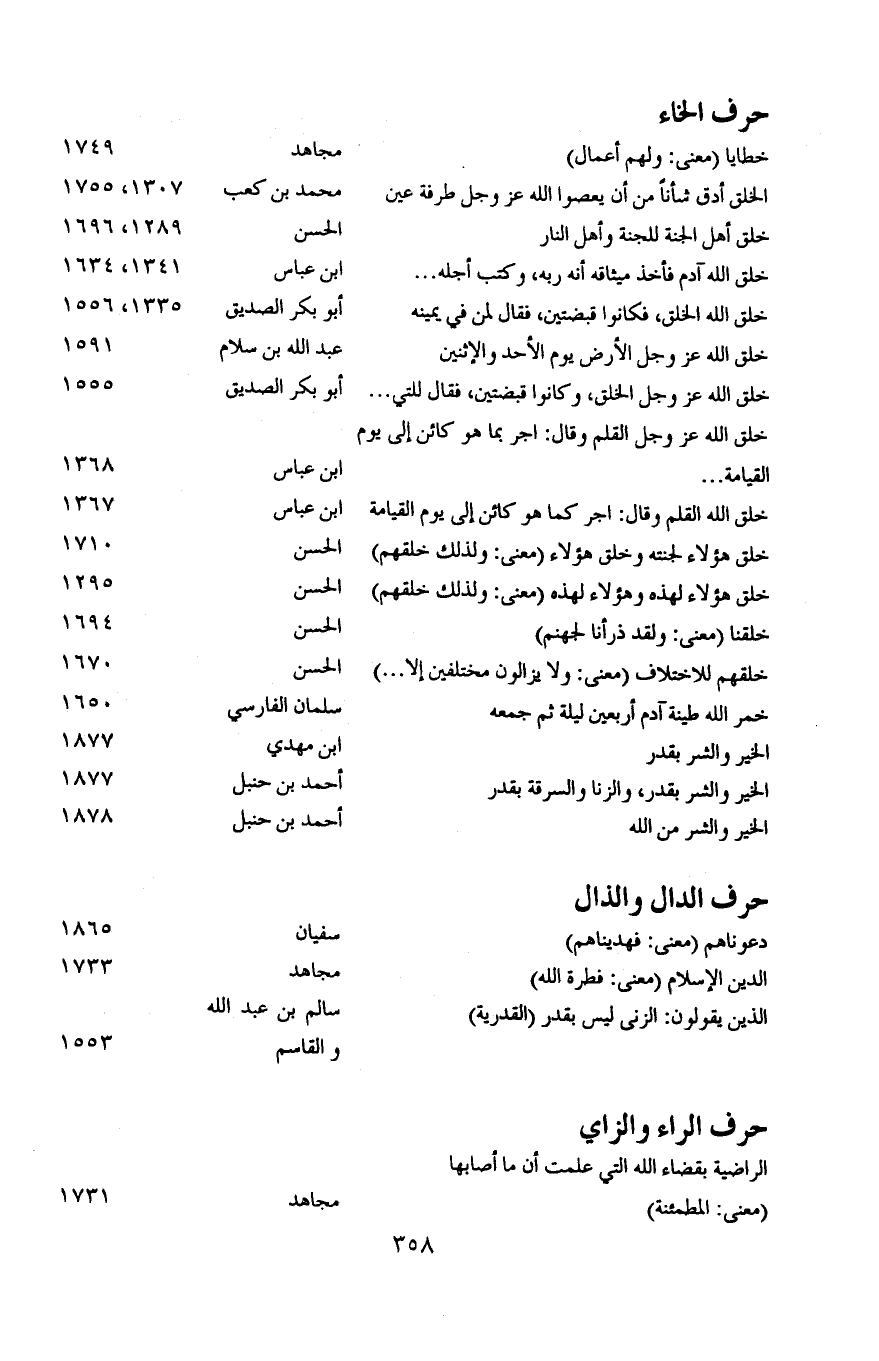 حرف الخاء
خطايا (معنى: ولهم أعمال) مجاهد ١٧٤٩
الخلق أدق شأناً من أن يعصوا الله عز وجل طرفة عين محمد بن كعب ١٣٠٧، ١٧٥٥
خلق أهل الجنة للجنة وأهل النار الحسن ١٢٨٩، ١٦٩٦
خلق الله آدم فأخذ ميثاقه أنه ربه، وكتب أجله... ابن عباس ١٣٤١، ١٦٣٤
خلق الله الخلق، فكانوا قبضتين، فقال لمن في يمينه أبو بكر الصديق ١٣٣٥، ١٥٥٦
خلق الله عز وجل الأرض يوم الأحد والإثنين عبد الله بن سلام ١٥٩١
خلق الله عز وجل الخلق، وكانوا قبضتين، فقال للتي... أبو بكر الصديق ١٥٥٥
خلق الله عز وجل القلم وقال: اجر بما هو كائن إلى يوم
القيامة... ابن عباس ١٣٦٨
خلق الله القلم وقال: اجر كما هو كائن إلى يوم القيامة ابن عباس ١٣٦٧
خلق هؤلاء لجنته وخلق هؤلاء (معنى: ولذلك خلقهم) الحسن ١٧١٠
خلق هؤلاء لهذه وهؤلاء لهذه (معنى: ولذلك خلقهم) الحسن ١٢٩٥
خلقنا (معنى: ولقد ذرأنا لجهنم) الحسن ١٦٩٤
خلقهم للاختلاف (معنى: ولا يزالون مختلفين إلا...) الحسن ١٦٧٠
خمر الله طينة آدم أربعين ليلة ثم جمعه سلمان الفارسي ١٦٥٠
الخير والشر بقدر ابن مهدي ١٨٧٧
الخير والشر بقدر، والزنا والسرقة بقدر أحمد بن حنبل ١٨٧٧
الخير والشر من الله أحمد بن حنبل ١٨٧٨
حرف الدال والذال
دعوناهم (معنى: فهديناهم) سفيان ١٨٦٥
الدين الإسلام (معنى: فطرة الله) مجاهد ١٧٣٣
الذين يقولون: الزنى ليس بقدر (القدرية) سالم بن عبد الله
و القاسم ١٥٥٣
حرف الراء والزاي
الراضية بقضاء الله التي علمت أن ما أصابها
(معنى: المطمئنة) مجاهد ١٧٣١
٣٥٨